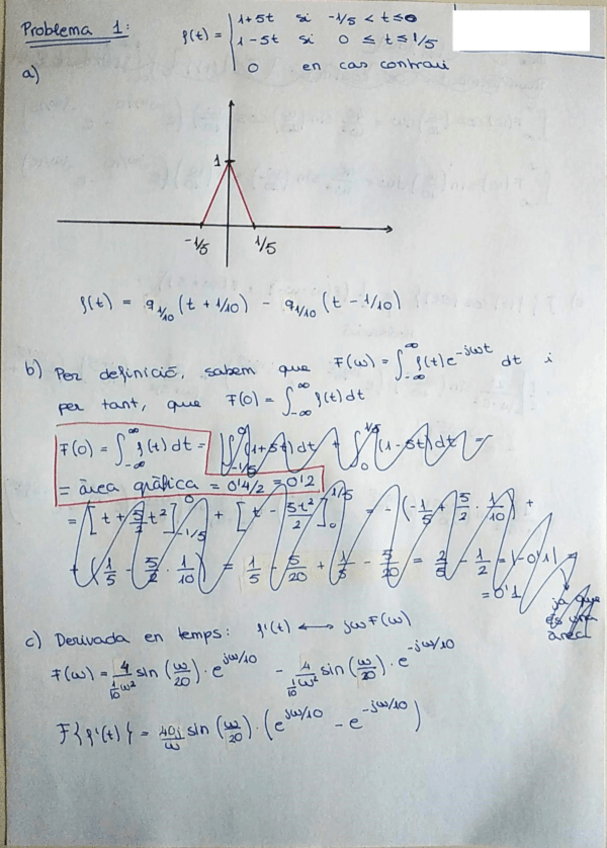 Problema 1:
f(t) = { 1+5t si -1/5 < t ≤ 0
1-5t si 0 ≤ t ≤ 1/5
0 en cas contrari
a)
1
-1/5 1/5
f(t) = q_{1/10} (t + 1/10) - q_{1/10} (t - 1/10)
b) Per definició, sabem que F(ω) = ∫_{-∞}^{∞} f(t) e^{-jωt} dt i
per tant, que F(0) = ∫_{-∞}^{∞} f(t) dt
F(0) = ∫_{-∞}^{∞} f(t) dt = ∫_{-1/5}^{0} (1+5t) dt + ∫_{0}^{1/5} (1-5t) dt =
= àrea gràfica = 0'4/2 = 0'2
= [t + 5/2 t²]_{-1/5}^{0} + [t - 5t²/2]_{0}^{1/5} = - (-1/5 + 5/2 · 1/10) +
+ (1/5 - 5/2 · 1/10) = 1/5 - 5/20 + 1/5 - 5/20 = 2/5 - 1/2 = |-0'1| =
= 0'1 ja que
és una
àrea
c) Derivada en temps: f'(t) ⟷ jωF(ω)
F(ω) = 4/(1/10 ω²) sin (ω/20) · e^{jω/10} - 4/(1/10 ω²) sin (ω/20) · e^{-jω/10}
F{f'(t)} = 40j/ω sin (ω/20) · (e^{jω/10} - e^{-jω/10})